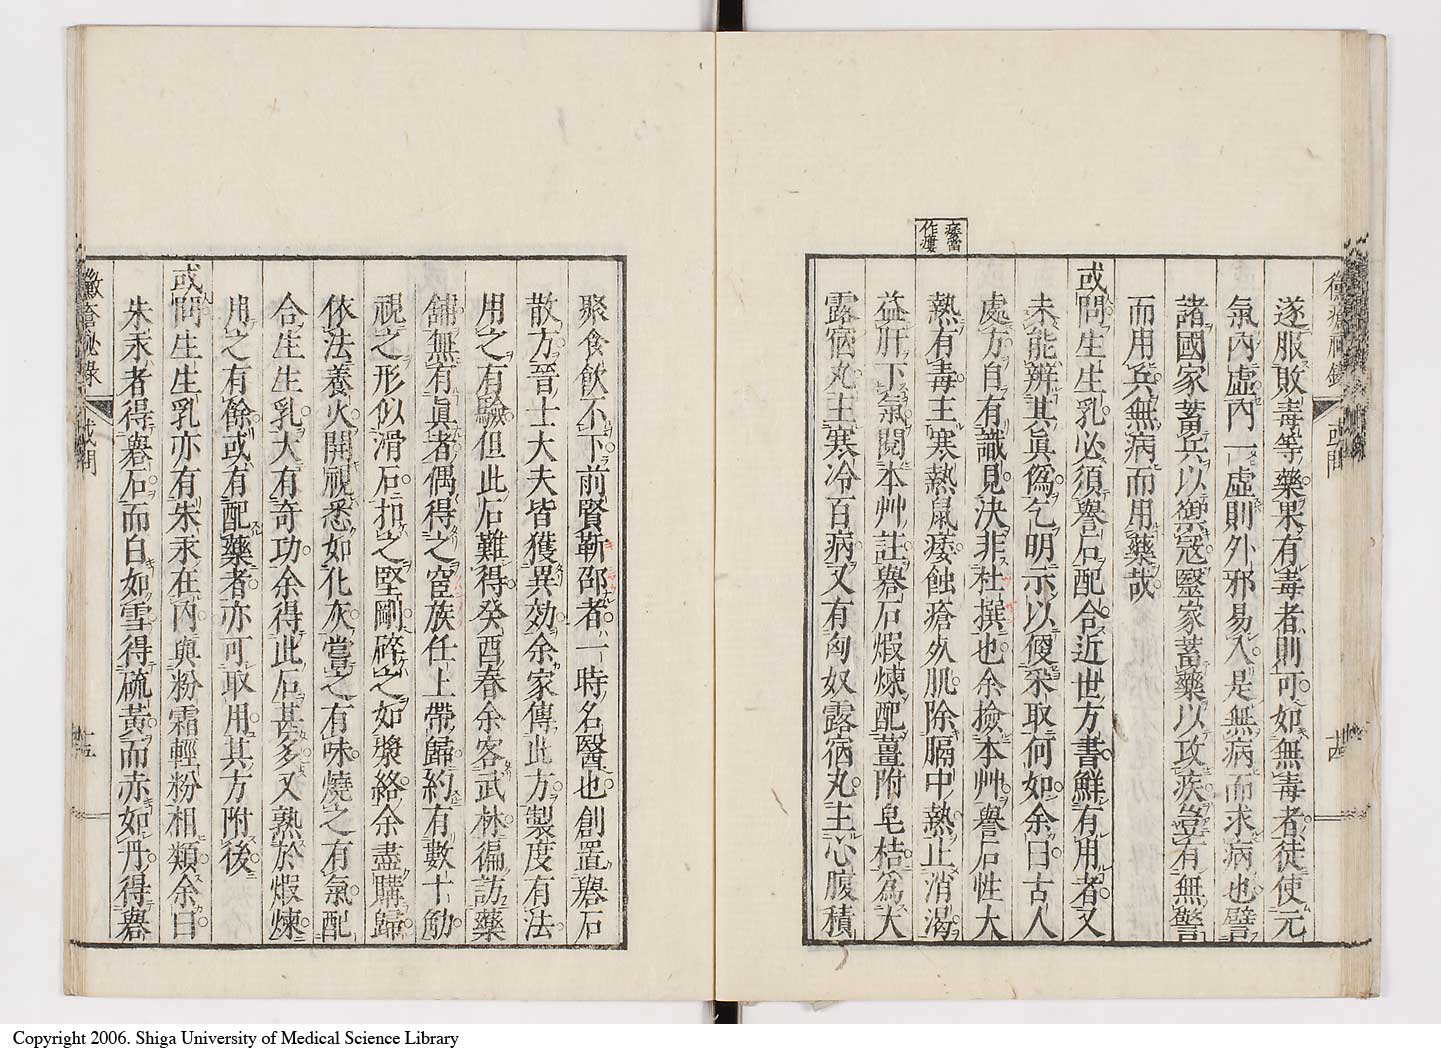 遂服敗毒等藥果有毒者則可如無毒者徒使元
氣內虛內一虛則外邪易入是無病而求病也譬
諸國家蓄兵以禦冦毉家蓄藥以攻疾豈有無警
而用兵無病而用藥哉
或問生生乳必須礜石配合近世方書鮮有用者又
未能辨其眞僞乞明示以便采取何如余曰古人
處方自有識見決非杜撰也余撿本艸礜石性大
熱有毒主寒熱鼠痿蝕瘡死肌除膈中熱止消渴
益肝下氣閱本艸註礜石煆煉配薑附皂桔爲大
露宿丸主寒冷百病又有匈奴露宿丸主心腹積
痿當
作瘻
黴瘡祕錄
或問
十四
聚食飮不下前賢靳邵者一時名醫也創置礜石
散方晉士大夫皆獲異効余家傳此方製度有法
用之有驗但此石難得癸酉春余客武林徧訪藥
舖無有眞者偶得之宦族任上帶歸約有數十觔
視之形似滑石扣之堅剛碎之如漿絡余盡購歸
依法養火開視悉如化灰嘗之有味燒之有氣配
合生生乳大有奇功余得此石甚多又熟於煆煉
用之有餘或有配藥者亦可取用其方附後
或問生生乳亦有朱汞在內與粉霜輕粉相類余曰
朱汞者得礜石而白如雪得硫黃而赤如丹得礜
黴瘡祕錄
或問
十五
Copyright 2006. Shiga University of Medical Science Library